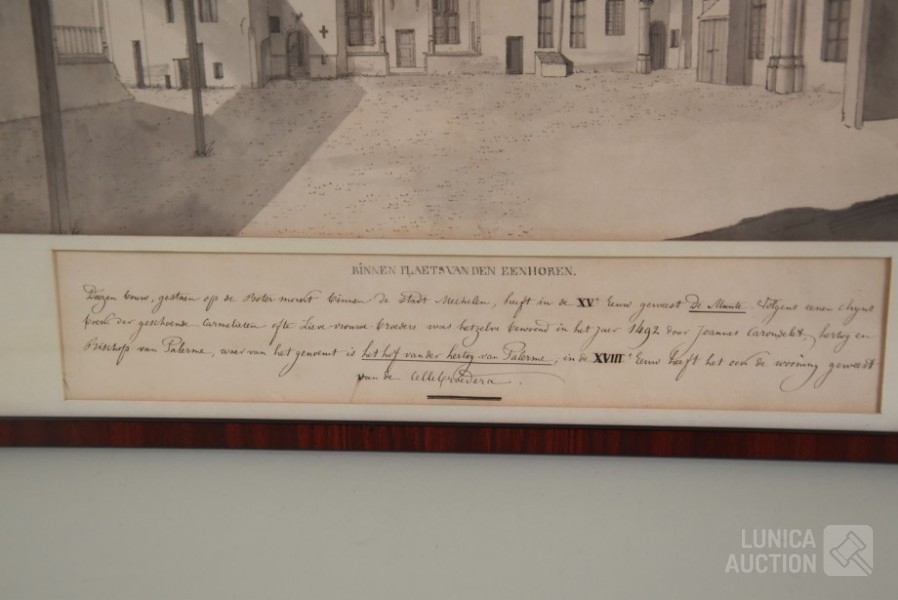 BINNEN PLAETS VAN DEN EENHOREN.
Dezen bouw, gestaen op de Boter merckt binnen de Stadt Mechelen, heeft in de XVe Eeuw geweest De Munte. Volgens eenen chyns
boeck der geschoende Carmelieten ofte Lieve-vrouwe-broeders was hetzelve bewoond in het jaer 1492 door Joannes Carondelet, hertog en
Bisschop van Palerme, waer van het genoemt is het hof van der hertog van Palerme, in de XVIIIe Eeuw heeft het ook de wooning geweest
van de Cellebroeders.
LUNICA
AUCTION